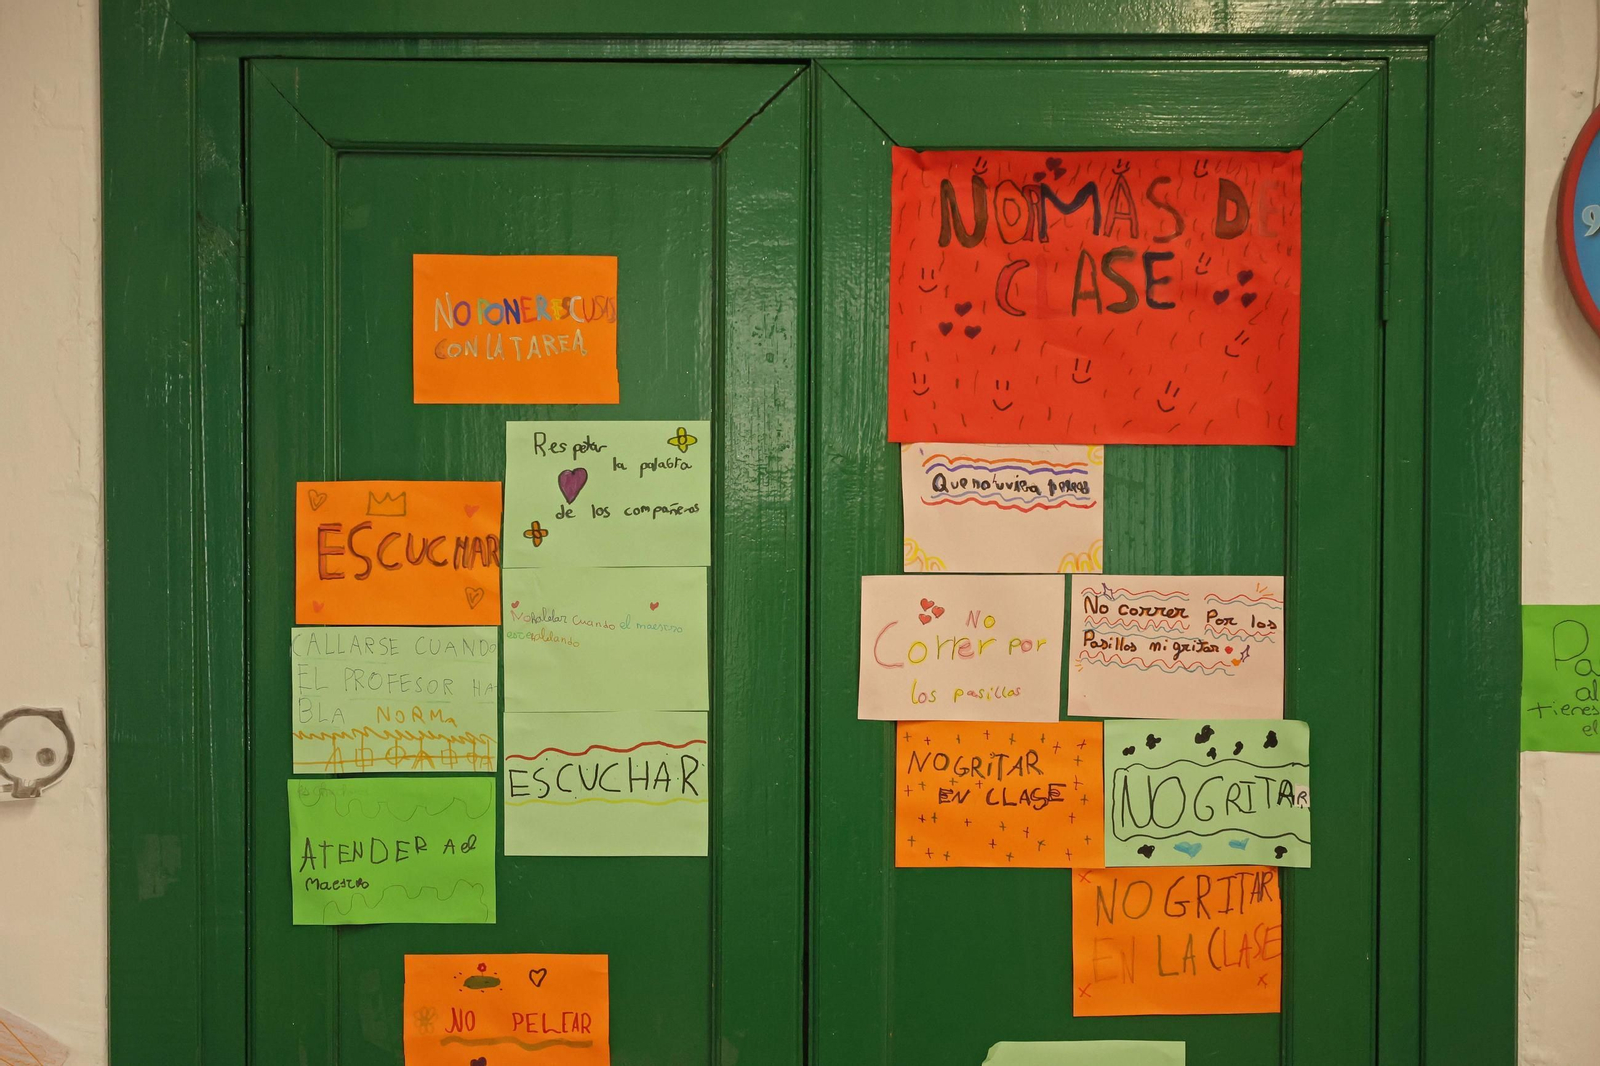 NORMAS DE
CLASE
NO PONER ESCUSAS
CON LA TAREA
Respetar
la palabra
de los compañeros
ESCUCHAR
No hablar cuando el maestro
CALLARSE CUANDO
EL PROFESOR HA
BLA NORMA
ESCUCHAR
ATENDER A el
maestro
NO PELEAR
Que no uviera peleas
No
Correr por
los pasillos
No correr Por los
Pasillos ni gritar
NO GRITAR
EN CLASE
NO GRITAR
NO GRITAR
EN LA CLASE
Pa
al
tienes
el
9